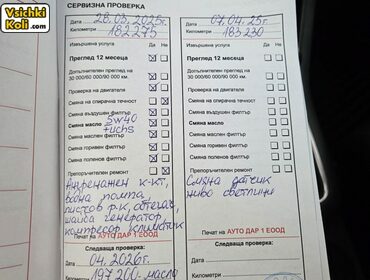 Vsichki
Koli.com
СЕРВИЗНА ПРОВЕРКА
Дата 28.03.2025г.
Километри 182275
Извършена услуга Да Не
Преглед 12 месеца
Допълнителен преглед на
30 000/60 000/90 000 км.
Проверка на двигателя
Смяна на спирачна течност
Смяна въздушен филтър
Смяна масло 5w40
fuchs
Смяна маслен филтър
Смяна горивен филтър
Смяна поленов филтър
Препоръчителен ремонт
Ангренажен к-кт,
водна помпа,
пистов р-к, обтегач,
шайба генератор,
компресор климатик
Печат на АУТО ДАР 1 ЕООД
Следваща проверка:
Дата 04.2026г.
197 200 - масло
Дата 07.04.25г.
Километри 183230
Извършена услуга Да Не
Преглед 12 месеца
Допълнителен преглед на
30 000/60 000/90 000 км.
Проверка на двигателя
Смяна на спирачна течност
Смяна въздушен филтър
Смяна масло
Смяна маслен филтър
Смяна горивен филтър
Смяна поленов филтър
Препоръчителен ремонт
Смяна датчик
ниво светлини
Печат на АУТО ДАР 1 ЕООД
Следваща проверка:
Дата
Километри